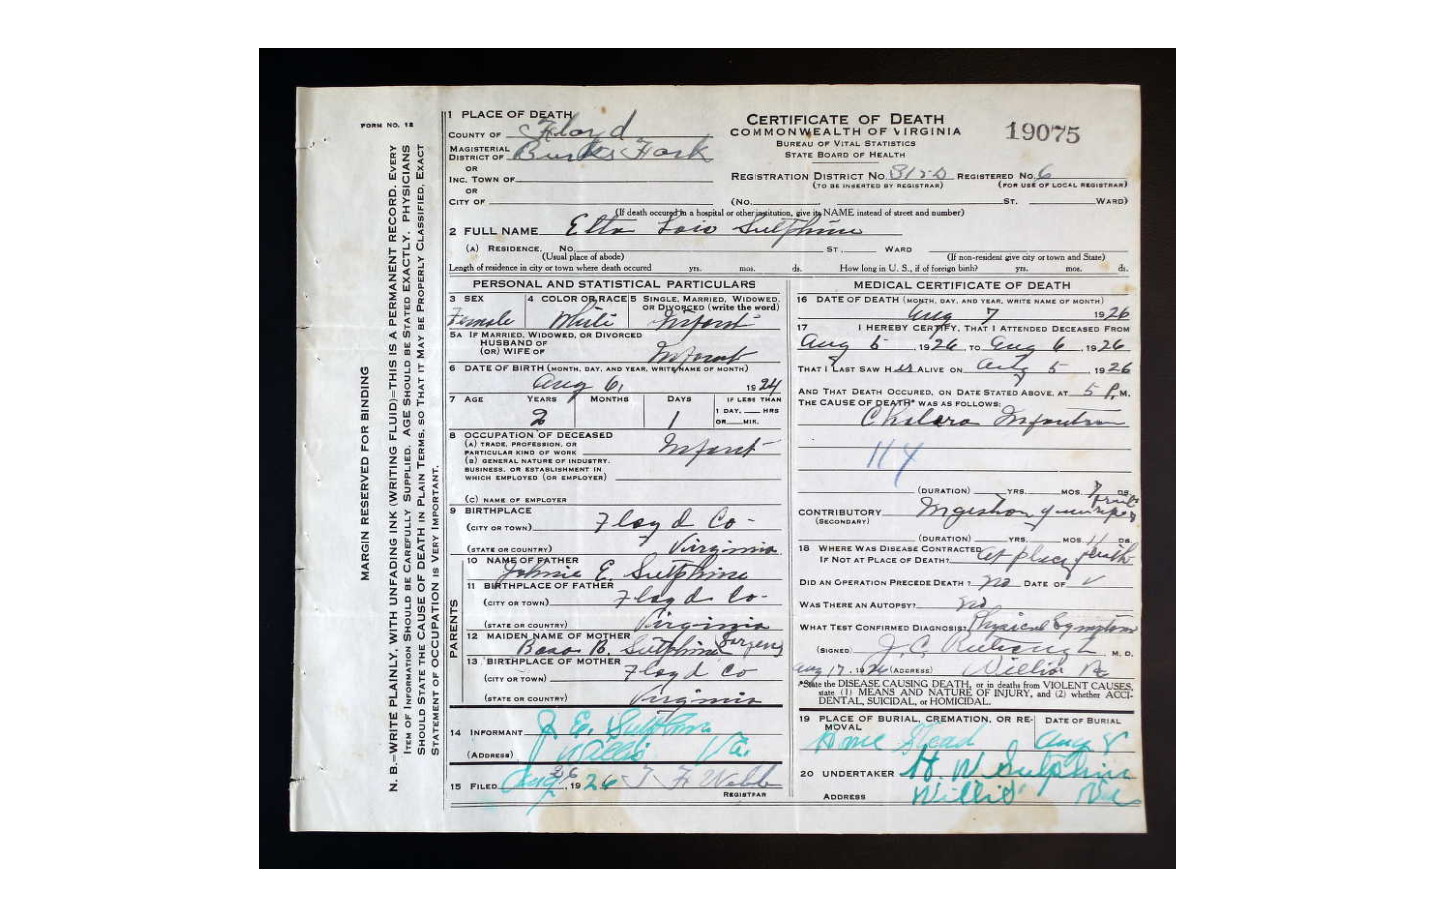 FORM NO. 12
MARGIN RESERVED FOR BINDING
N. B.—WRITE PLAINLY, WITH UNFADING INK (WRITING FLUID)—THIS IS A PERMANENT RECORD. EVERY
ITEM OF INFORMATION SHOULD BE CAREFULLY SUPPLIED. AGE SHOULD BE STATED EXACTLY. PHYSICIANS
SHOULD STATE THE CAUSE OF DEATH IN PLAIN TERMS, SO THAT IT MAY BE PROPERLY CLASSIFIED. EXACT
STATEMENT OF OCCUPATION IS VERY IMPORTANT.
1 PLACE OF DEATH
COUNTY OF Floyd
MAGISTERIAL
DISTRICT OF Burks Fork
OR
INC. TOWN OF
OR
CITY OF
CERTIFICATE OF DEATH
COMMONWEALTH OF VIRGINIA
BUREAU OF VITAL STATISTICS
STATE BOARD OF HEALTH
19075
REGISTRATION DISTRICT NO. REGISTERED NO. 6
(TO BE INSERTED BY REGISTRAR) (FOR USE OF LOCAL REGISTRAR)
(NO. ST. WARD)
(If death occured in a hospital or other institution, give its NAME instead of street and number)
2 FULL NAME Etta Lois Sutphine
(A) RESIDENCE. NO. ST. WARD
(Usual place of abode) (If non-resident give city or town and State)
Length of residence in city or town where death occured yrs. mos. ds. How long in U. S., if of foreign birth? yrs. mos. ds.
PERSONAL AND STATISTICAL PARTICULARS
3 SEX
Female
4 COLOR OR RACE
White
5 SINGLE, MARRIED, WIDOWED,
OR DIVORCED (write the word)
Infant
5A IF MARRIED, WIDOWED, OR DIVORCED
HUSBAND OF
(OR) WIFE OF Infant
6 DATE OF BIRTH (MONTH, DAY, AND YEAR, WRITE NAME OF MONTH)
Aug 6, 1924
7 AGE YEARS MONTHS DAYS IF LESS THAN
1 DAY, HRS
OR MIN.
2 1
8 OCCUPATION OF DECEASED
(A) TRADE, PROFESSION, OR
PARTICULAR KIND OF WORK Infant
(B) GENERAL NATURE OF INDUSTRY,
BUSINESS, OR ESTABLISHMENT IN
WHICH EMPLOYED (OR EMPLOYER)
(C) NAME OF EMPLOYER
9 BIRTHPLACE
(CITY OR TOWN) Floyd Co-
(STATE OR COUNTRY) Virginia
PARENTS
10 NAME OF FATHER
Johnie E. Sutphine
11 BIRTHPLACE OF FATHER
(CITY OR TOWN) Floyd Co-
(STATE OR COUNTRY) Virginia
12 MAIDEN NAME OF MOTHER
B. Sutphine
13 BIRTHPLACE OF MOTHER
(CITY OR TOWN) Floyd Co
(STATE OR COUNTRY) Virginia
14 INFORMANT J. E. Sutphine
(ADDRESS) Willis Va.
15 FILED Aug 26, 1926 T F Webb
REGISTRAR
MEDICAL CERTIFICATE OF DEATH
16 DATE OF DEATH (MONTH, DAY, AND YEAR, WRITE NAME OF MONTH)
Aug 7 1926
17 I HEREBY CERTIFY, THAT I ATTENDED DECEASED FROM
Aug 5, 1926, TO Aug 6, 1926
THAT I LAST SAW H er ALIVE ON Aug 5 1926
AND THAT DEATH OCCURED, ON DATE STATED ABOVE, AT 5 P. M.
THE CAUSE OF DEATH* WAS AS FOLLOWS:
Cholera Infantum
114
(DURATION) YRS. MOS. DS.
CONTRIBUTORY Ingestion of unripe fruit
(SECONDARY)
(DURATION) YRS. MOS. 11 DS.
18 WHERE WAS DISEASE CONTRACTED
IF NOT AT PLACE OF DEATH? at place death
DID AN OPERATION PRECEDE DEATH? no DATE OF
WAS THERE AN AUTOPSY? no
WHAT TEST CONFIRMED DIAGNOSIS? Physical Symptoms
(SIGNED) J. C. M. D.
Aug 17, 1926 (ADDRESS) Willis Va
*State the DISEASE CAUSING DEATH, or in deaths from VIOLENT CAUSES,
state (1) MEANS AND NATURE OF INJURY, and (2) whether ACCI-
DENTAL, SUICIDAL, or HOMICIDAL.
19 PLACE OF BURIAL, CREMATION, OR RE-
MOVAL
Home Stead
DATE OF BURIAL
Aug 8
20 UNDERTAKER H. W Sutphin
ADDRESS Willis Va